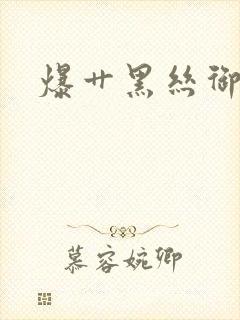 爆廿黑丝御
慕容婉卿